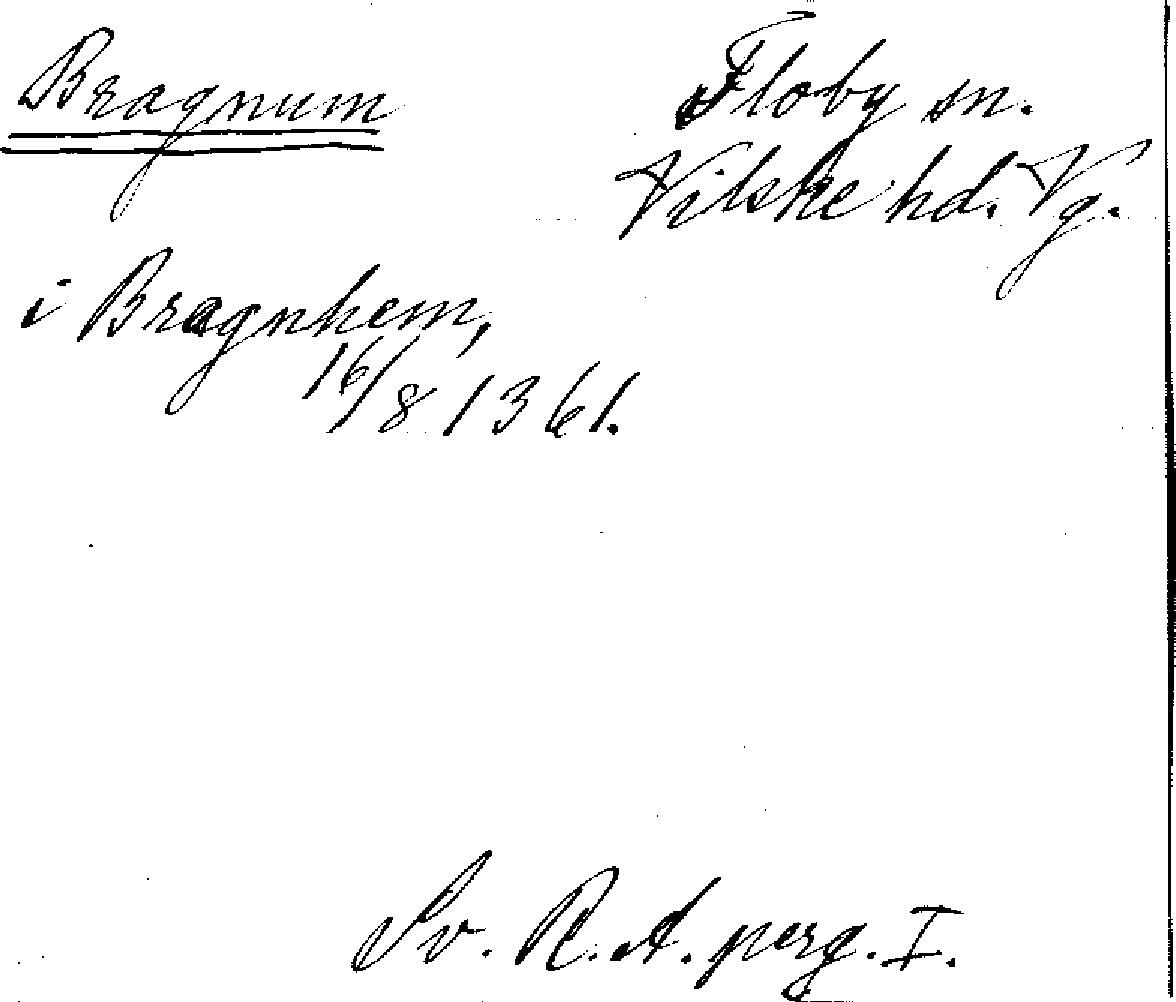 Bragnum
Floby sn.
Vilske hd. Vg.
i Bragnhem,
16/8 1361.
Sv. R. A. perg. I.